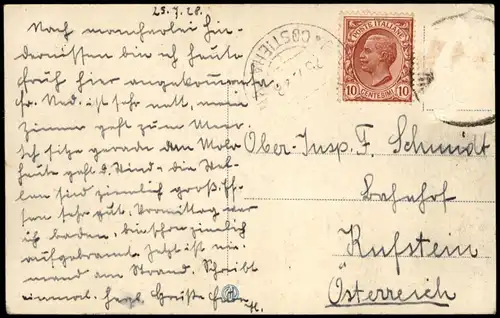 25.7.28.
Nach mancherlei Hin-
dernissen bin ich heute
früh hier angekommen.
Fr. Ned. ist sehr nett, mein
Zimmer geht zum Meer.
Ich sitze gerade am Molo
heute geht d. Wind, die Wel-
len sind ziemlich groß. Es-
sen sehr gut, Vormittag war
ich baden, bin schon ziemlich
aufgebrannt. Jetzt ist nie-
mand am Strand. Schreibt
einmal. Herzl. Grüße
POSTE ITALIANE
10 CENTESIMI 10
Ober-Insp. F. Schmidt
Bahnhof
Kufstein
Österreich